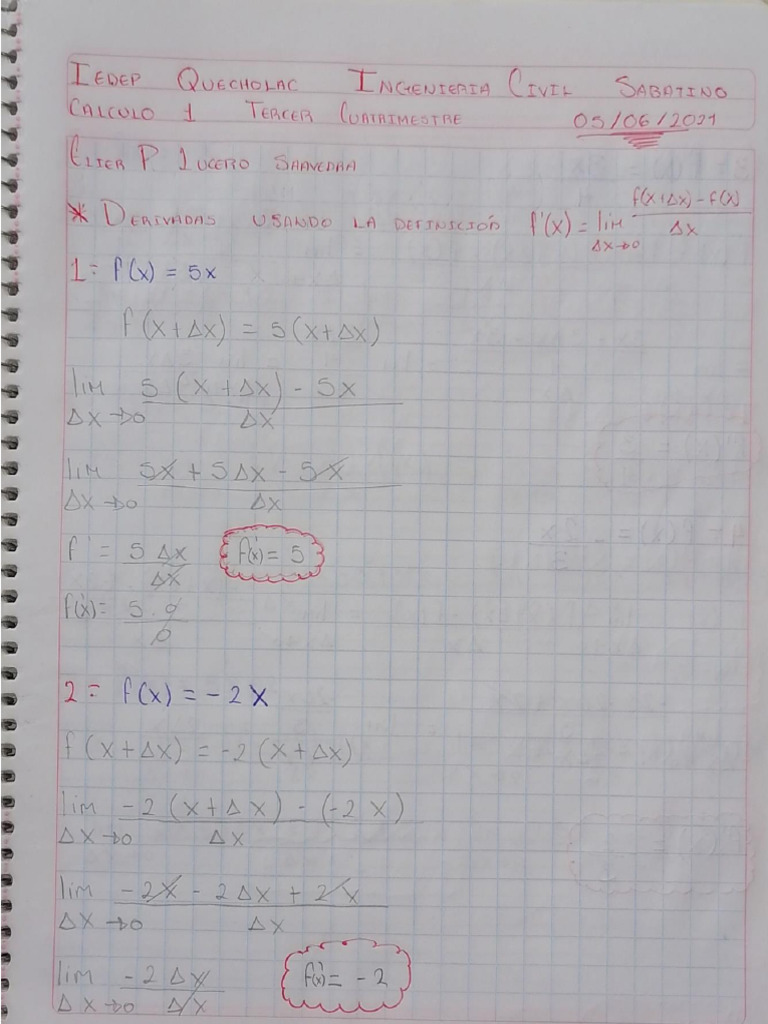 IEDEP QUECHOLAC INGENIERIA CIVIL SABATINO
CALCULO 1 TERCER CUATRIMESTRE 05/06/2021
ELIER P LUCERO SAAVEDRA
* DERIVADAS USANDO LA DEFINICIÓN f'(x) = lim Δx→0 f(x+Δx) - f(x) / Δx
1= f(x) = 5x
f(x+Δx) = 5(x+Δx)
lim Δx→0 5(x+Δx) - 5x / Δx
lim Δx→0 5x + 5Δx - 5x / Δx
f' = 5Δx / Δx f'(x) = 5
f'(x) = 5·0 / 0
2= f(x) = -2x
f(x+Δx) = -2(x+Δx)
lim Δx→0 -2(x+Δx) - (-2x) / Δx
lim Δx→0 -2x - 2Δx + 2x / Δx
lim Δx→0 -2Δx / Δx f'(x) = -2